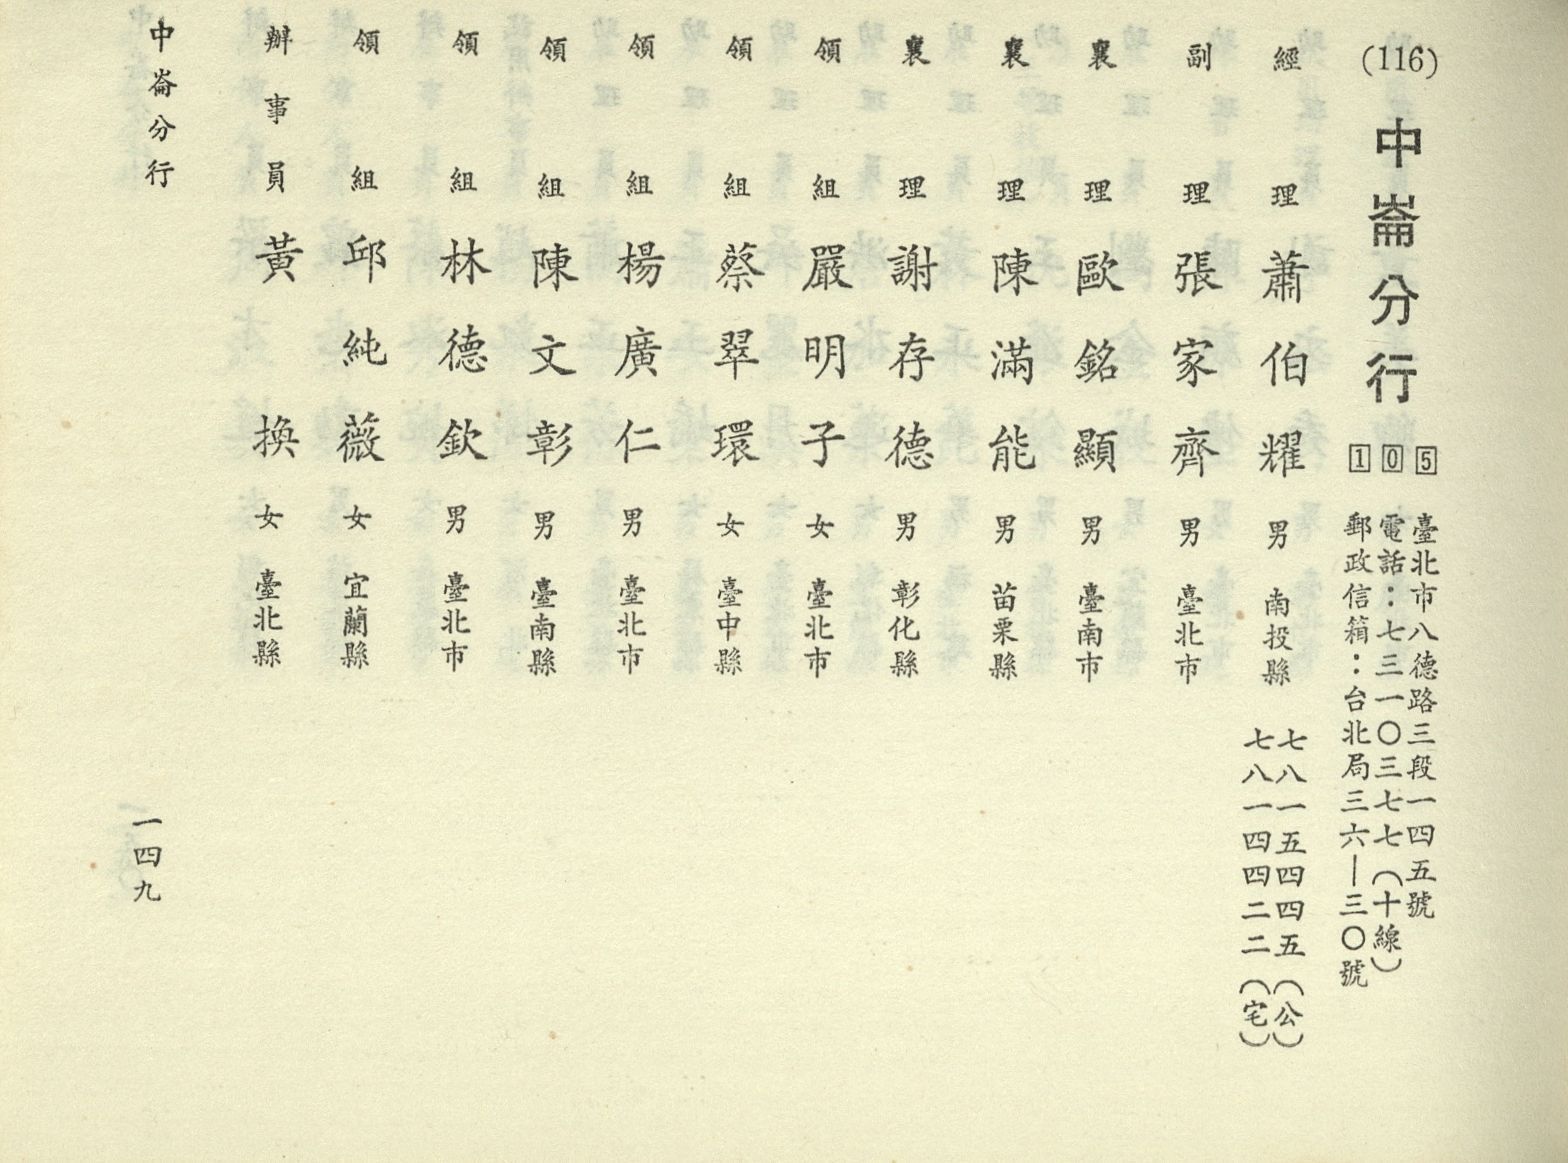 (116)
中崙分行
105
臺北市八德路三段一四五號
電話：七三一〇三七七（十線）
郵政信箱：台北局三六—三〇號
經理 蕭伯耀 男 南投縣 七八一五四四五（公）
七八一四四二二（宅）
副理 張家齊 男 臺北市
襄理 歐銘顯 男 臺南市
襄理 陳滿能 男 苗栗縣
襄理 謝存德 男 彰化縣
領組 嚴明子 女 臺北市
領組 蔡翠環 女 臺中縣
領組 楊廣仁 男 臺北市
領組 陳文彰 男 臺南縣
領組 林德欽 男 臺北市
領組 邱純薇 女 宜蘭縣
辦事員 黃換 女 臺北縣
中崙分行
一四九